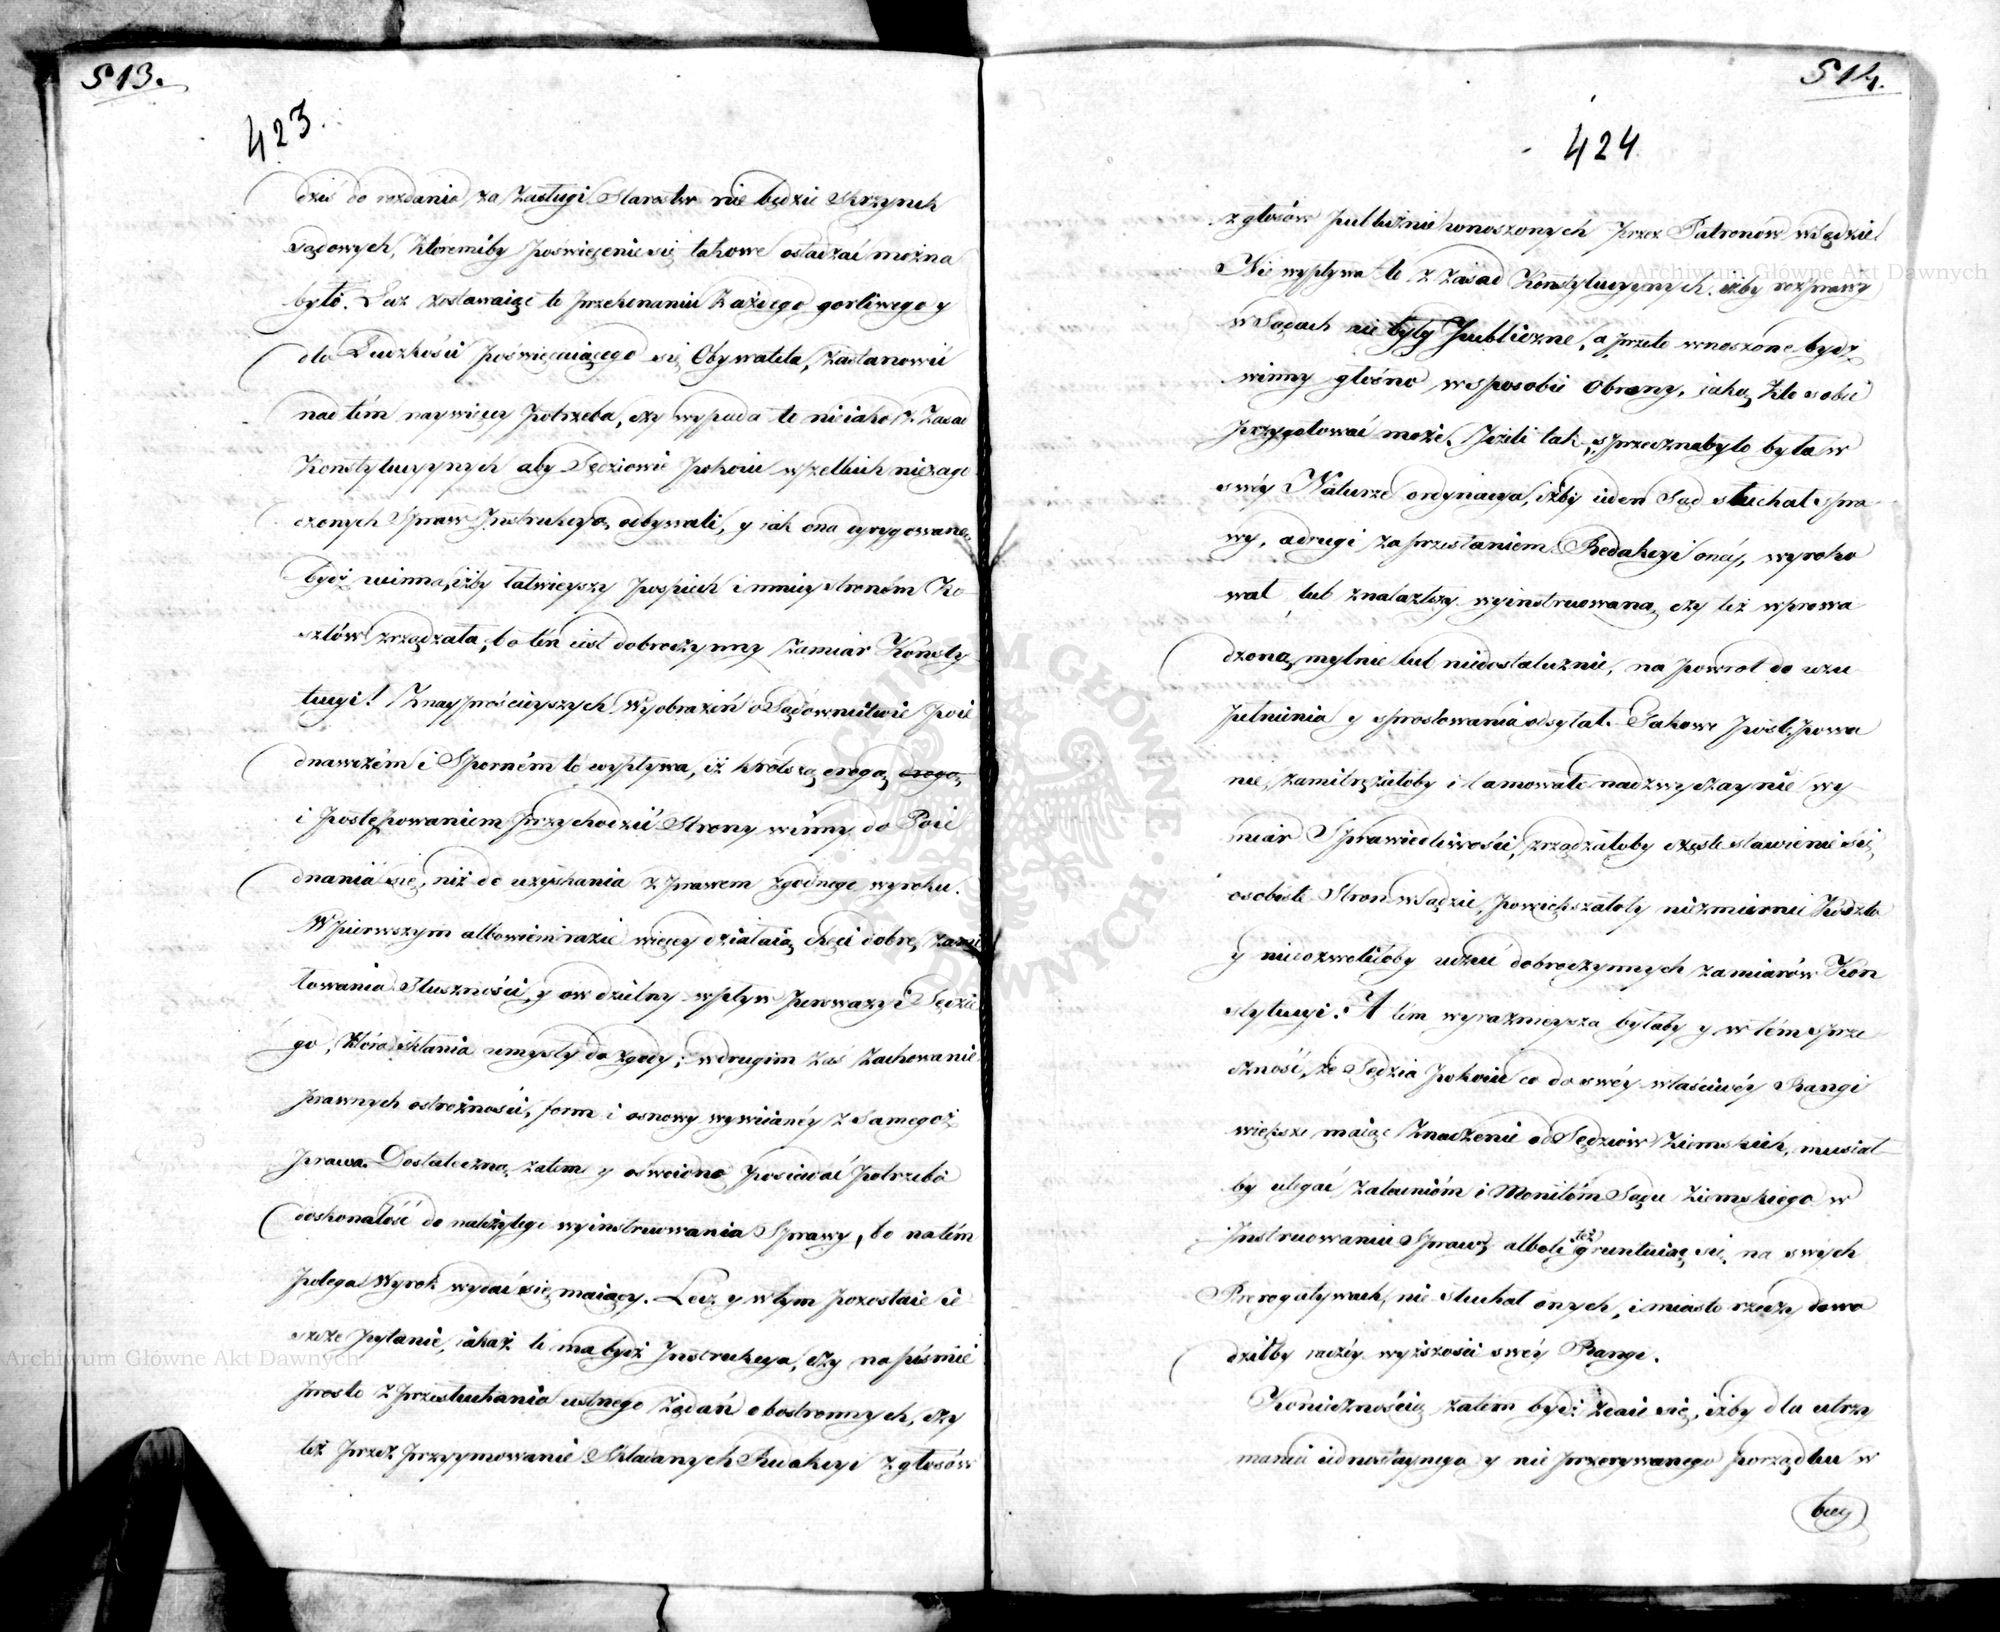 513.
423.
dziś do rozdania za Zasługi Starostw nie będzie Skrzynek
sądowych, któremiby poświęcenie się takowe osładzać można
było. Lecz zostawaiąc to przekonaniu Każdego gorliwego y
dla Ludzkości poświęcaiącego się Obywatela, Zastanowić
nad tém naywięcy potrzeba, czy wypada to nieiako z Zasad
Konstytucyynych aby Sędziowie Pokoiu wszelkich niezago
dzonych Spraw Instrukcyą odbywali, y jak ona dyrygowaną
bydź winna, iżby łatwieyszy pośpiech i mniey stronóm Ko
sztów zrządzała, bo tén iest dobroczynny Zamiar Konsty
tucyi! Znayprościeyszych wyobrażeń o Sądownictwie Poie
dnawczém i Sporném to wypływa, iż krótszą drogą drogą
i postępowaniem przychodzić Strony winny do Poie
dnania się, niż do uzyskania z prawem zgodnego wyroku.
W pierwszym albowiem razie więcey działaią chęci dobre, Zami
łowania Słuszności, y ow dzielny wpływ powagi Sędzie
go, która skłania umysły do zgody; w drugim zaś Zachowanie
prawnych ostrożności, form i osnowy wywiianéy z samegoż
prawa. Dostateczną zatem y oświeconą posiadać potrzeba
doskonałość do należytego wyinstruowania Sprawy, bo na tém
polega Wyrok wydać się maiący. Lecz y w tym pozostaie ie
szcze pytanie, iakaż to ma bydź Instrukcya, czy na piśmie
prosto z przesłuchania ustnego Żądań obostronnych, czy
też przez przyymowanie Składanych Redakcyi z głosów
514.
424
z głosów publicznie wnoszonych przez Patronów w Sądzie
Nie wypływa to z Zasad Konstytucyynych. iżby rozprawy
w Sądach nie były Publiczne, a przeto wnoszone bydź
winny głośno w sposobie Obrony, iaką kto sobie
przygotować może. Jeżeli tak, sprzecznąbyto była w
swéy Naturze ordynacya, iżby ieden Sąd słuchał spra
wy, a drugi za przesłaniem Redakcyi onéy, wyroko
wał lub znalazłszy wyinstruowaną czy też wprowa
dzoną mylnie lub niedostatecznie, na powrot do uzu
pełnienia y sprostowania odsyłał. Takowe postępowa
nie, zamitrężałoby i tamowało nadzwyczaynie wy
miar Sprawiedliwości, zrządzałoby częste stawienie się
osobiste Stron w Sądzie, powiększałoby niezmiernie Koszta
y niedozwoliłoby udzieć dobroczynnych zamiarów Kon
stytucyi. A tém wyrazneysza byłaby y w tém sprze
czność, że Sędzia pokoiu co do swéy właściwéy Rangi
większe maiąc Znaczenie od Sędziów Ziemskich, musiał
by ulegać Zaleceniom i Monitóm Sądu Ziemskiego w
Instruowaniu Spraw, alboli też gruntuiąc się na swych
Prerogatywach, nie słuchał onych, i miasto rzeczy dowo
dziłby raczéy wyższości swéy Rangi.
Koniecznością zatém bydź zdaie się, iżby dla utrzy
mania iednostaynego y nie przerywanego porządku w
biegu
Archiwum Główne Akt Dawnych
Archiwum Główne Akt Dawnych
ARCHIWUM GŁÓWNE AKT DAWNYCH